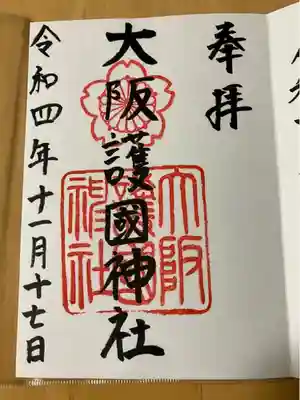 奉拝
大阪護國神社
令和四年十一月十七日
大阪
護國
神社